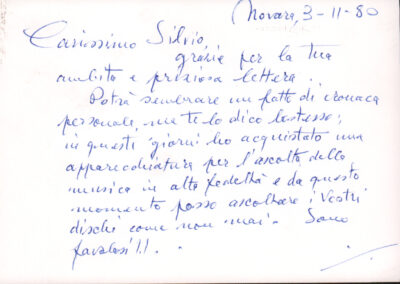 Novara, 3-11-80
Carissimo Silvio,
grazie per la tua
ambita e preziosa lettera.
Potrà sembrare un fatto di cronaca
personale, ma te lo dico lo stesso;
in questi giorni ho acquistato una
apparecchiatura per l'ascolto della
musica in alta fedeltà e da questo
momento posso ascoltare i Vostri
dischi come non mai. Sono
favolosi!!.